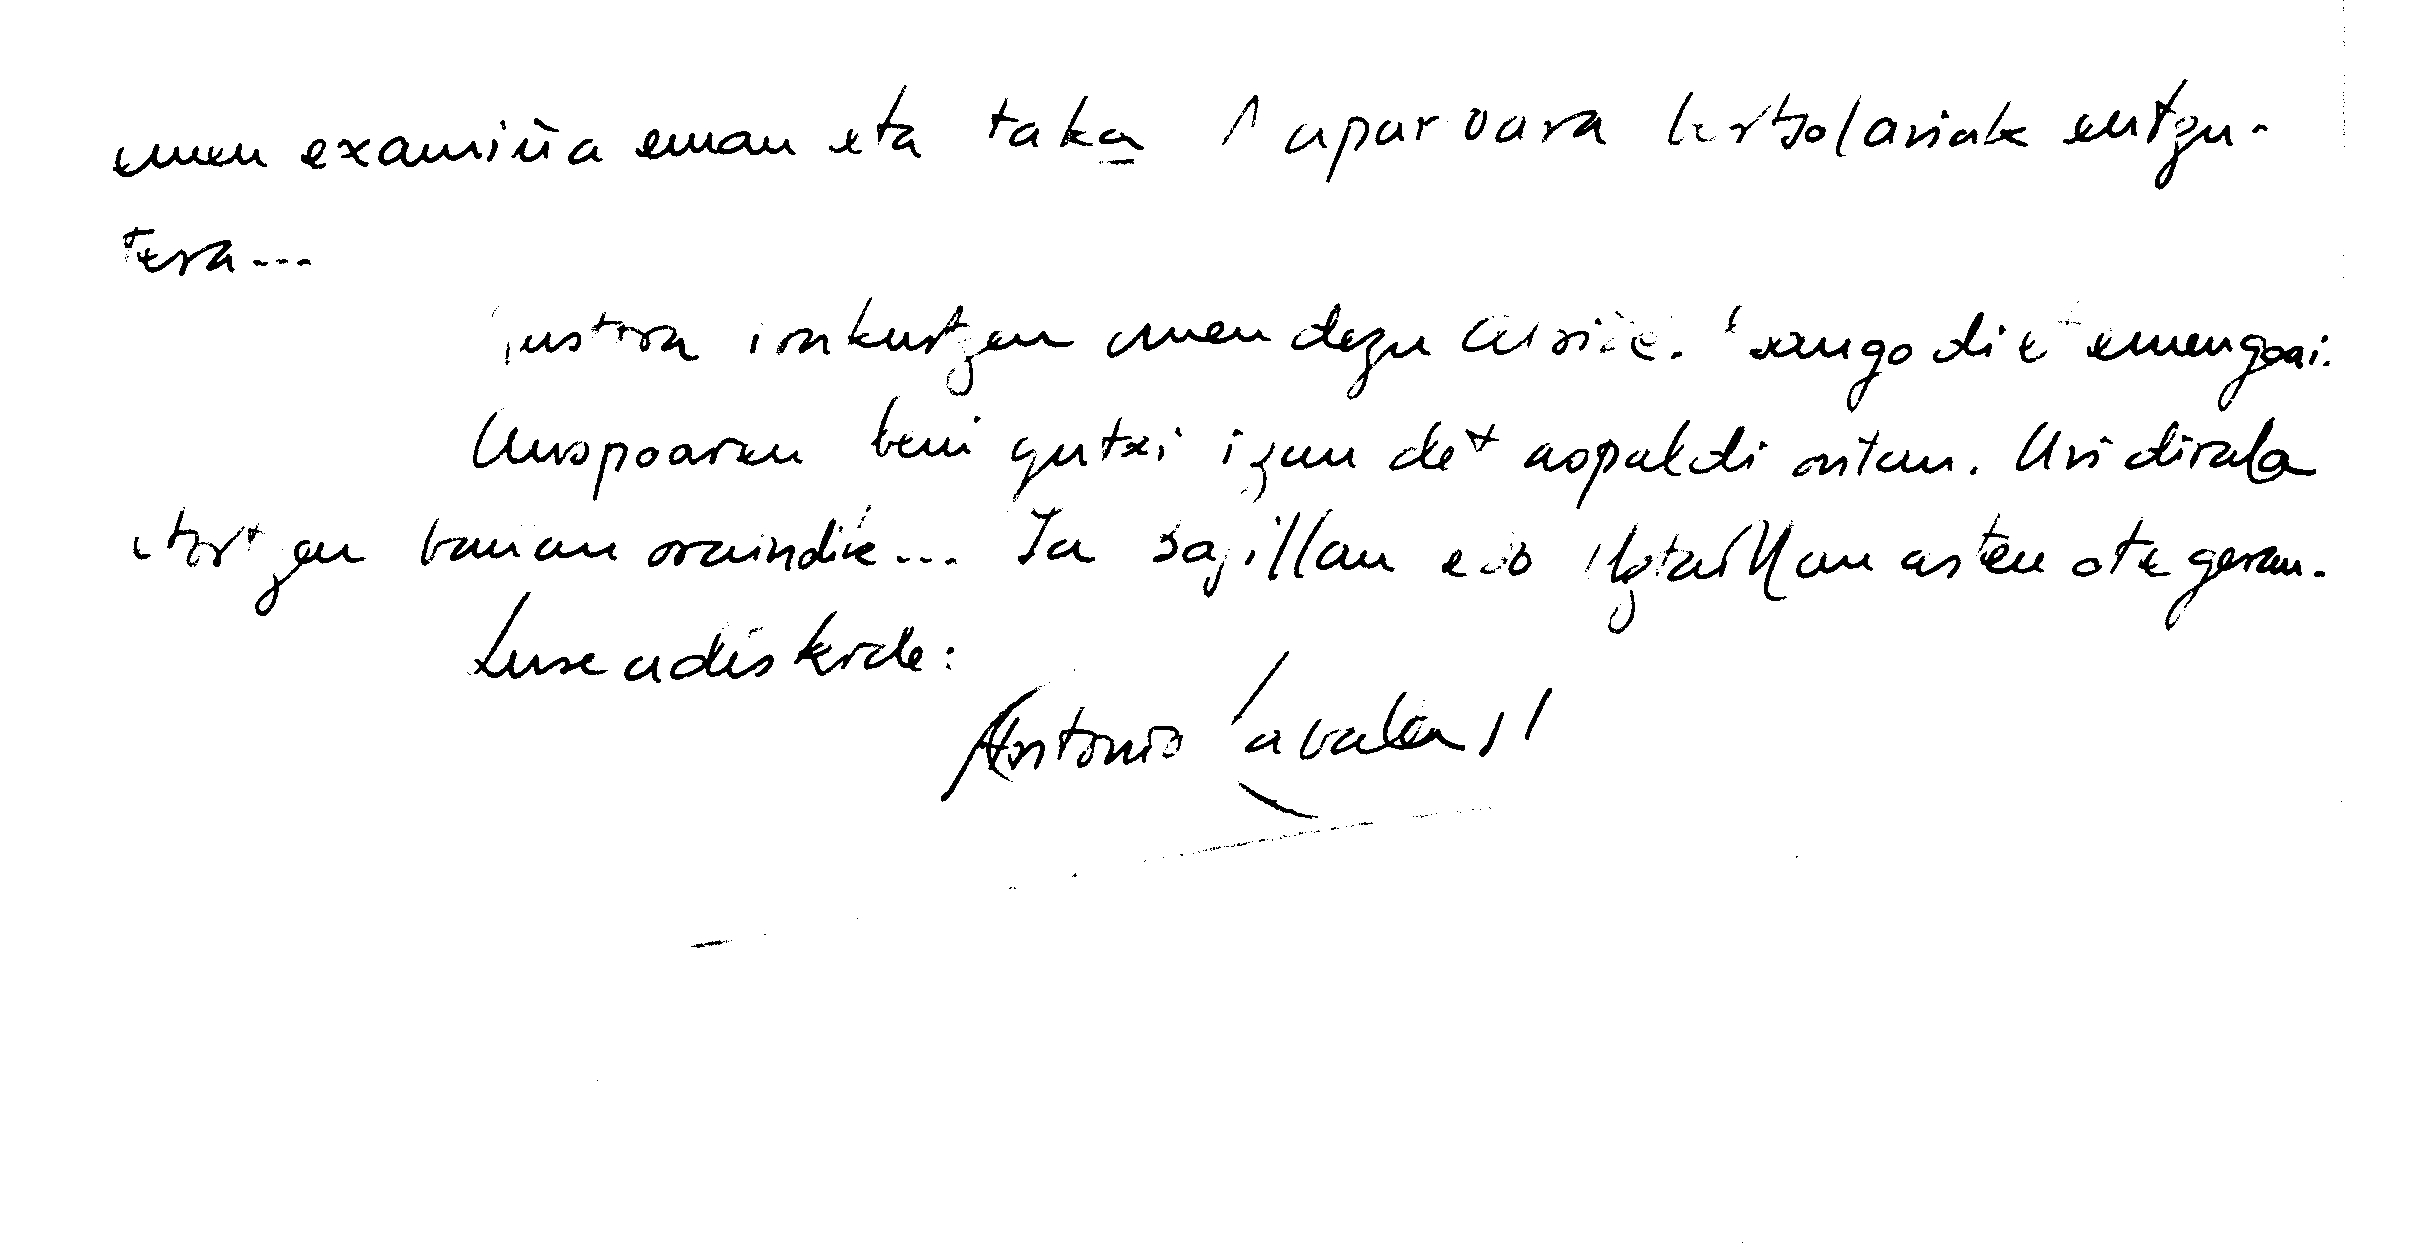 emen examiña eman eta taka Naparroara bertsolariak entzu-
tzera...
Gustora irakurtzen omen dezu Aurrie. Esango diet emengoai.
Auspoaren berri gutxi izan det aspaldi ontan. Ari dirala
etortzen banan oraindik... Ia sajillan edo Uztaillan asten ote geran.
Zure adiskide:
Antonio Zavala SJ